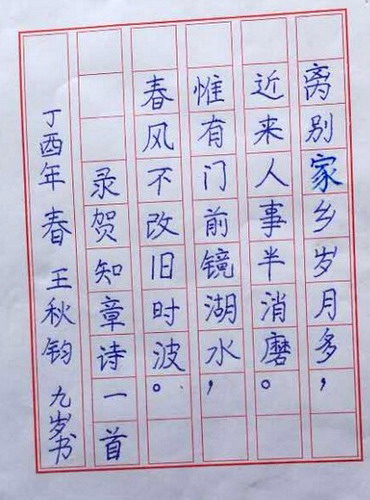 离别家乡岁月多，
近来人事半消磨。
惟有门前镜湖水，
春风不改旧时波。
录贺知章诗一首
丁酉年 春 王秋钧 九岁书